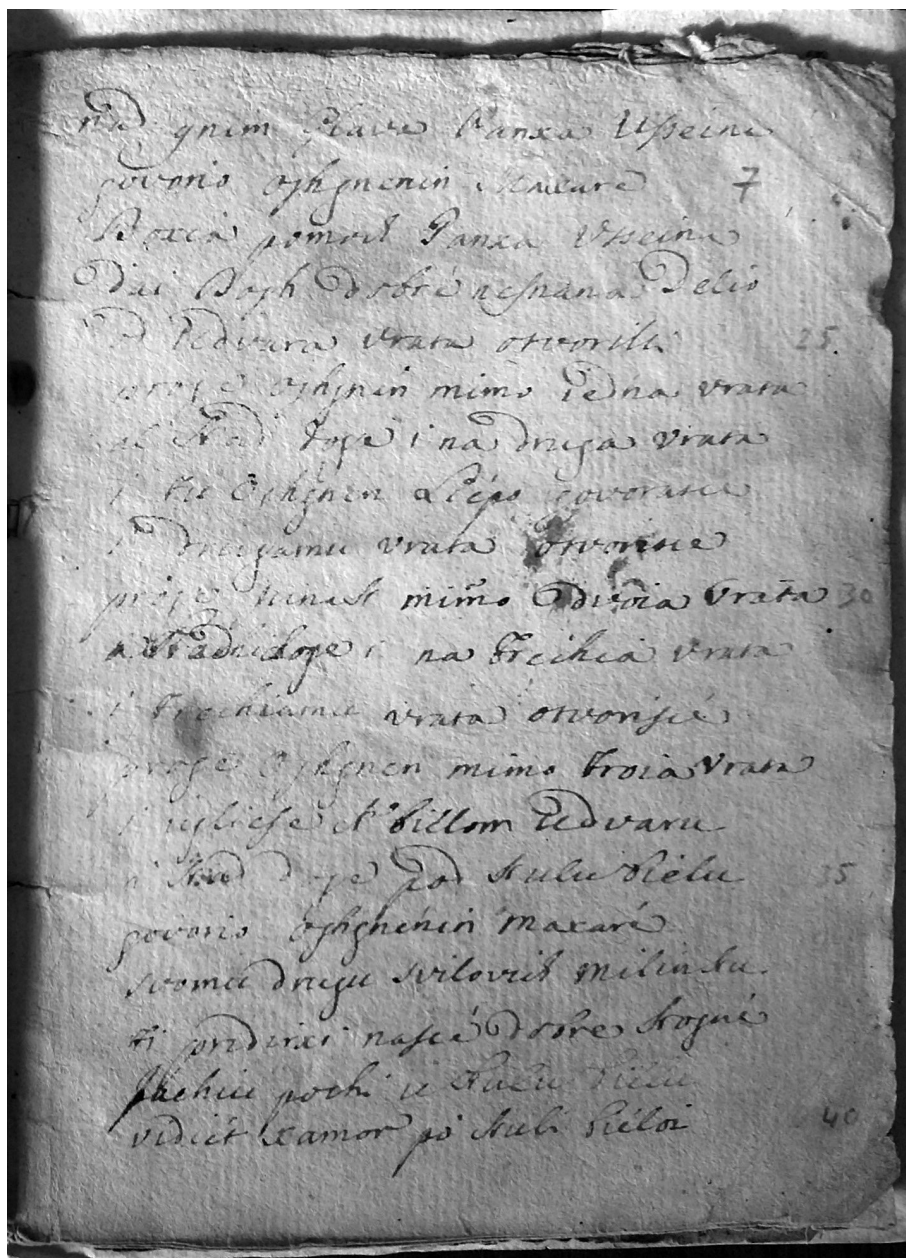 Nad gnim Glave Panxa Usseina
govorio Ojhgnenin Maxare 7
Boxia pomoch Panxa Usseina
Dai Bogh dobré nesnana Delio
vrata otvorilli 25.
proje Ojhgnen mimo iedna vrata
Kad doge i na druga vrata
i tu Ojhgnen Liépo govorasce
i drugamu vrata otvorisce
proje junak mimo Dvoia vrata 30
a Kadnidoge i na Trechia vrata
i Trechiamu vrata otvoriscé
proje Ojhgnen mimo Troia Vrata
i uglieſe K billom Tedvaru
Kad doge pod Kulu Biélu 35
govorio Ojhgnénin Maxaré
svomu drugu Svilovich Milinku
ti pridirxi nascé dobre kogné
Ja chiu pochi u Kulu Biélu
vidiét xamor po Kuli Biéloi 40